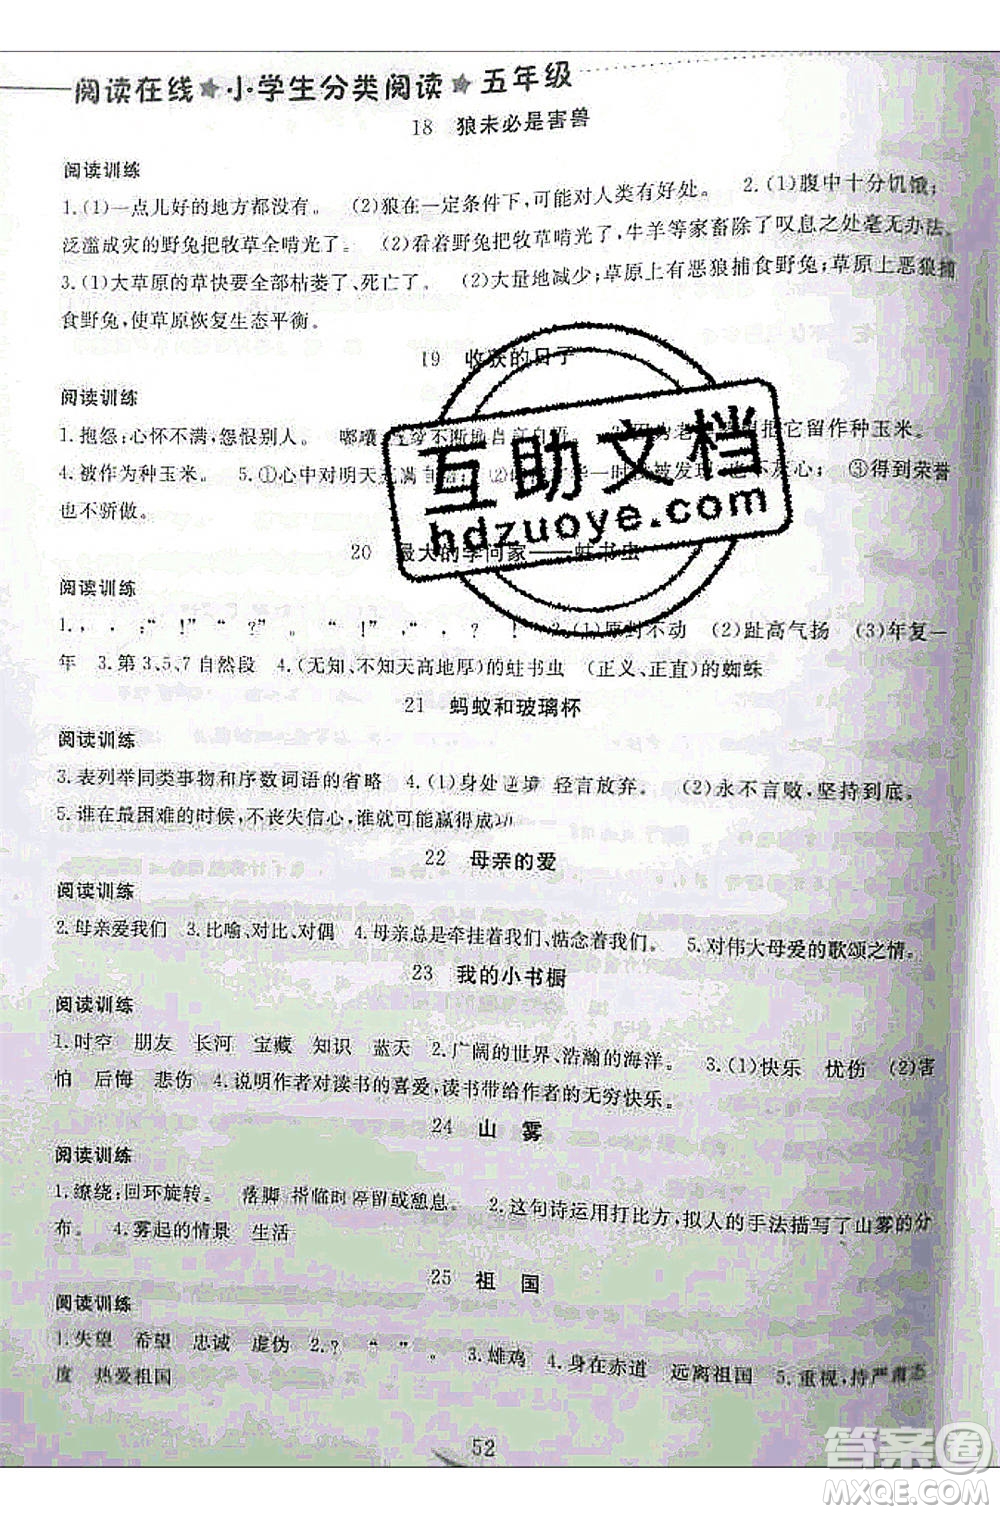 阅读在线★小学生分类阅读★五年级
18 狼未必是害兽
阅读训练
1.(1)一点儿好的地方都没有。 (2)狼在一定条件下,可能对人类有好处。 2.(1)腹中十分饥饿;
泛滥成灾的野兔把牧草全啃光了。 (2)看着野兔把牧草啃光,牛羊等家畜除了叹息之处毫无办法。
3.(1)大草原的草快要全部枯萎了、死亡了。 (2)大量地减少;草原上有恶狼捕食野兔;草原上恶狼捕
食野兔,使草原恢复生态平衡。
19 收获的日子
阅读训练
1.抱怨:心怀不满,怨恨别人。 嘟囔 不断地自言自语。 2.因为老 把它留作种玉米。
4.被作为种玉米。 5.①心中对明天充满 ②才华一时 被发现 不灰心; ③得到荣誉
也不骄傲。
20 最大的学问家——蛀书虫
阅读训练
1., , :“ !”“ ?”。“ !” ,“ , ? ! 2.(1)原封不动 (2)趾高气扬 (3)年复一
年 3.第3、5、7自然段 4.(无知、不知天高地厚)的蛀书虫 (正义、正直)的蜘蛛
21 蚂蚁和玻璃杯
阅读训练
3.表列举同类事物和序数词语的省略 4.(1)身处逆境 轻言放弃。 (2)永不言败,坚持到底。
5.谁在最困难的时候,不丧失信心,谁就可能赢得成功
22 母亲的爱
阅读训练
2.母亲爱我们 3.比喻、对比、对偶 4.母亲总是牵挂着我们,惦念着我们。 5.对伟大母爱的歌颂之情。
23 我的小书橱
阅读训练
1.时空 朋友 长河 宝藏 知识 蓝天 2.广阔的世界、浩瀚的海洋。 3.(1)快乐 忧伤 (2)害
怕 后悔 悲伤 4.说明作者对读书的喜爱,读书带给作者的无穷快乐。
24 山 雾
阅读训练
1.缭绕:回环旋转。 落脚 指临时停留或憩息。 2.这句诗运用打比方,拟人的手法描写了山雾的分
布。 4.雾起的情景 生活
25 祖 国
阅读训练
1.失望 希望 忠诚 虚伪 2.? “ ” 。 3.雄鸡 4.身在赤道 远离祖国 5.重视,持严肃态
度 热爱祖国
52
互助文档
hdzuoye.com
答案圈
MXQE.COM